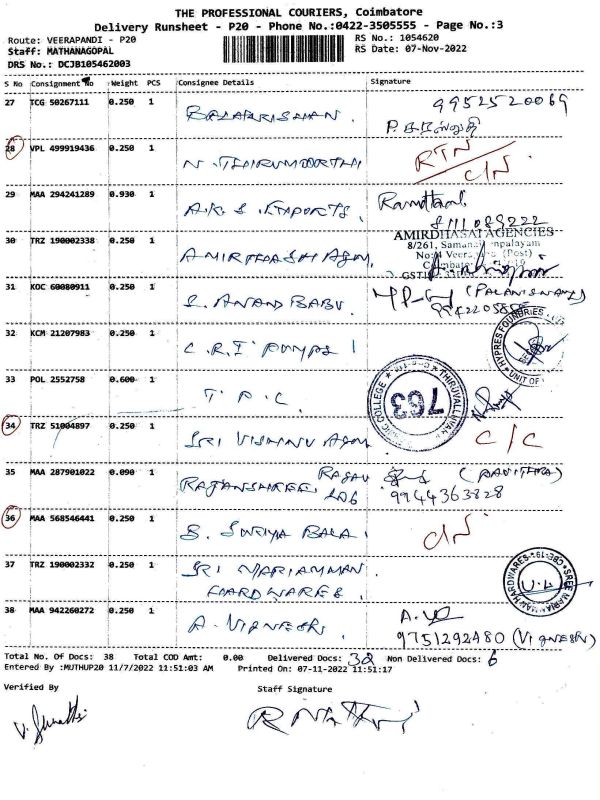 THE PROFESSIONAL COURIERS, Coimbatore
Delivery Runsheet - P20 - Phone No.:0422-3505555 - Page No.:3
Route: VEERAPANDI - P20
RS No.: 1054620
Staff: MATHANAGOPAL
RS Date: 07-Nov-2022
DRS No.: DCJB105462003
S No Consignment No Weight PCS Consignee Details Signature
27 TCG 50267111 0.250 1 9952520069
BALAKRISHAN.
28 VPL 499919436 0.250 1 RTN
N. THIRUMOORTHI C/N
29 MAA 294241289 0.930 1
A.K.S. EXPORTS. 8111089222
30 TRZ 190002338 0.250 1 AMIRDHASAI AGENCIES
8/261,
AMIRTHAASAI AGEN.
31 KOC 60080911 0.250 1 (PALANISWAMY)
S. ANAND BABU
32 KCM 21207983 0.250 1 HYPRES FOUNDRIES
C.R.I PUMPS UNIT OF
33 POL 2552758 0.600 1 763
T.P.C. COLLEGE THIRUVALLUVAR
34 TRZ 51004897 0.250 1
SRI VISHNU AGEN C/C
35 MAA 287901022 0.090 1 (PAVITHRA)
RAJANSHREE 9944363828
36 MAA 568546441 0.250 1
S. SURIYA BALA C/N
37 TRZ 190002332 0.250 1
SRI MARIAMMAN SREE MARIAMMAN HARDWARES CBE-19
HARDWARES
38 MAA 942260272 0.250 1
A. VIGNESH. 9751292480 (VIGNESH)
Total No. Of Docs: 38 Total COD Amt: 0.00 Delivered Docs: 32 Non Delivered Docs: 6
Entered By :MUTHUP20 11/7/2022 11:51:03 AM Printed On: 07-11-2022 11:51:17
Verified By Staff Signature